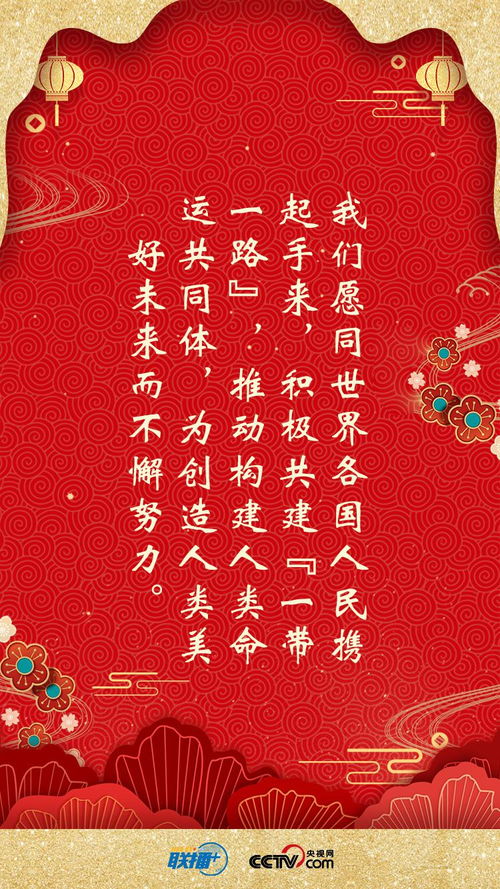 我们愿同世界各国人民携
起手来，积极共建『一带
一路』，推动构建人类命
运共同体，为创造人类美
好未来而不懈努力。
联播+
CCTV 央视网
com